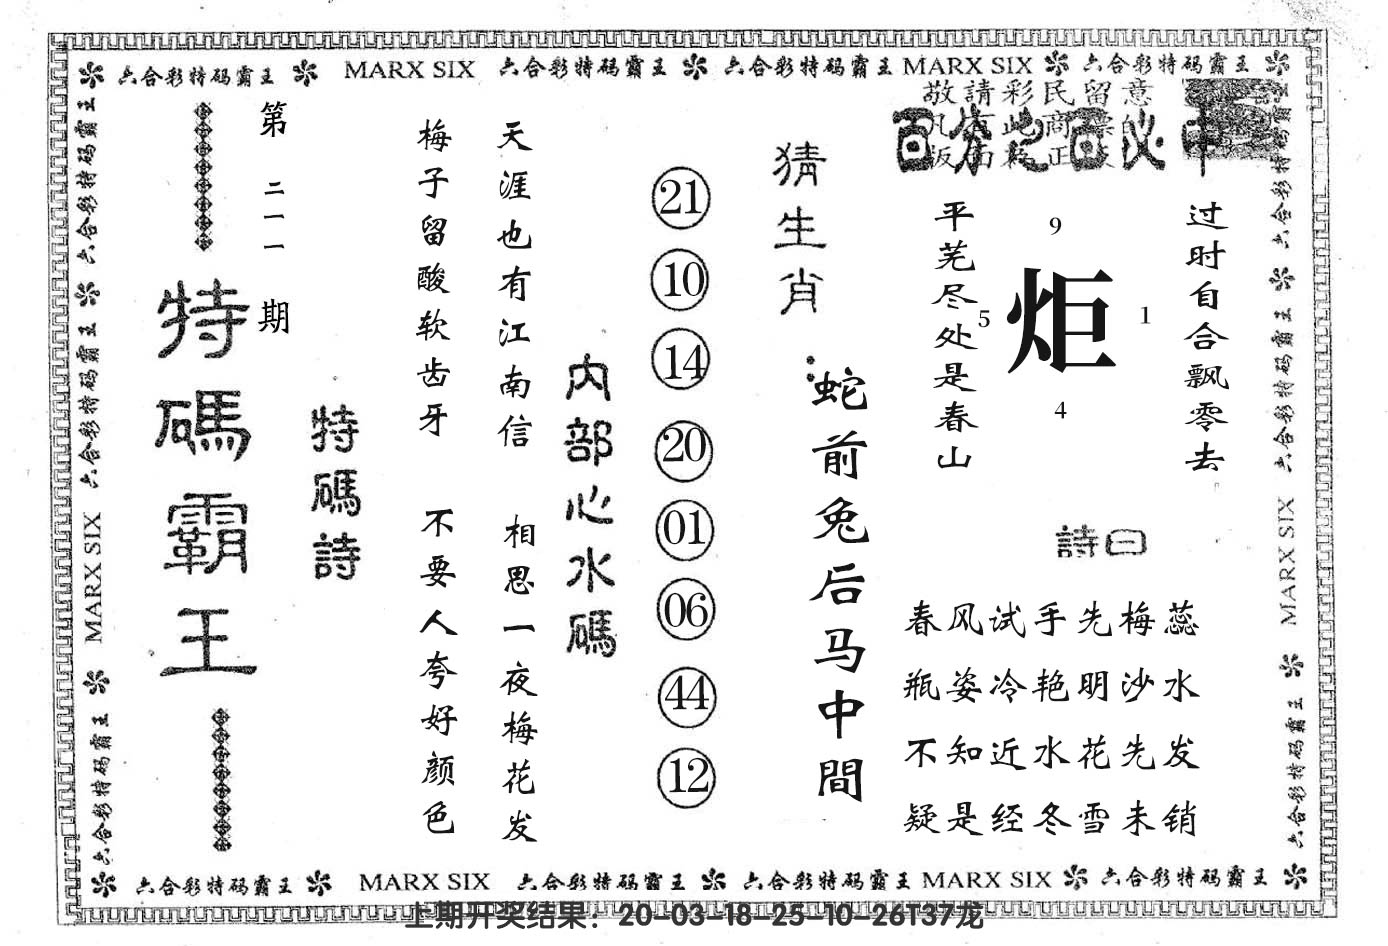 六合彩特码霸王 MARX SIX 六合彩特码霸王 六合彩特码霸王 MARX SIX 六合彩特码霸王
敬請彩民留意
过时自合飘零去
9
5
炬
1
4
平芜尽处是春山
詩曰
春风试手先梅蕊
瓶姿冷艳明沙水
不知近水花先发
疑是经冬雪未销
猜生肖:
蛇前兔后马中間
21
10
14
20
01
06
44
12
内部心水碼
天涯也有江南信 相思一夜梅花发
梅子留酸软齿牙 不要人夸好颜色
特碼詩
第二一一期
特碼霸王
六合彩特码霸王 六合彩特码霸王 MARX SIX 六合彩特码霸王
六合彩特码霸王 六合彩特码霸王 MARX SIX 六合彩特码霸王
六合彩特码霸王 MARX SIX 六合彩特码霸王 六合彩特码霸王 MARX SIX 六合彩特码霸王
上期开奖结果：20-03-18-25-10-26T37龙